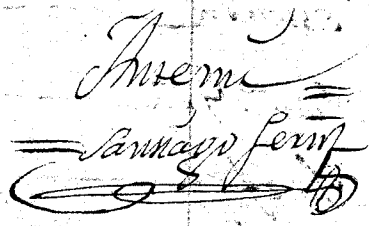 Ante mi
Santiago Ferin